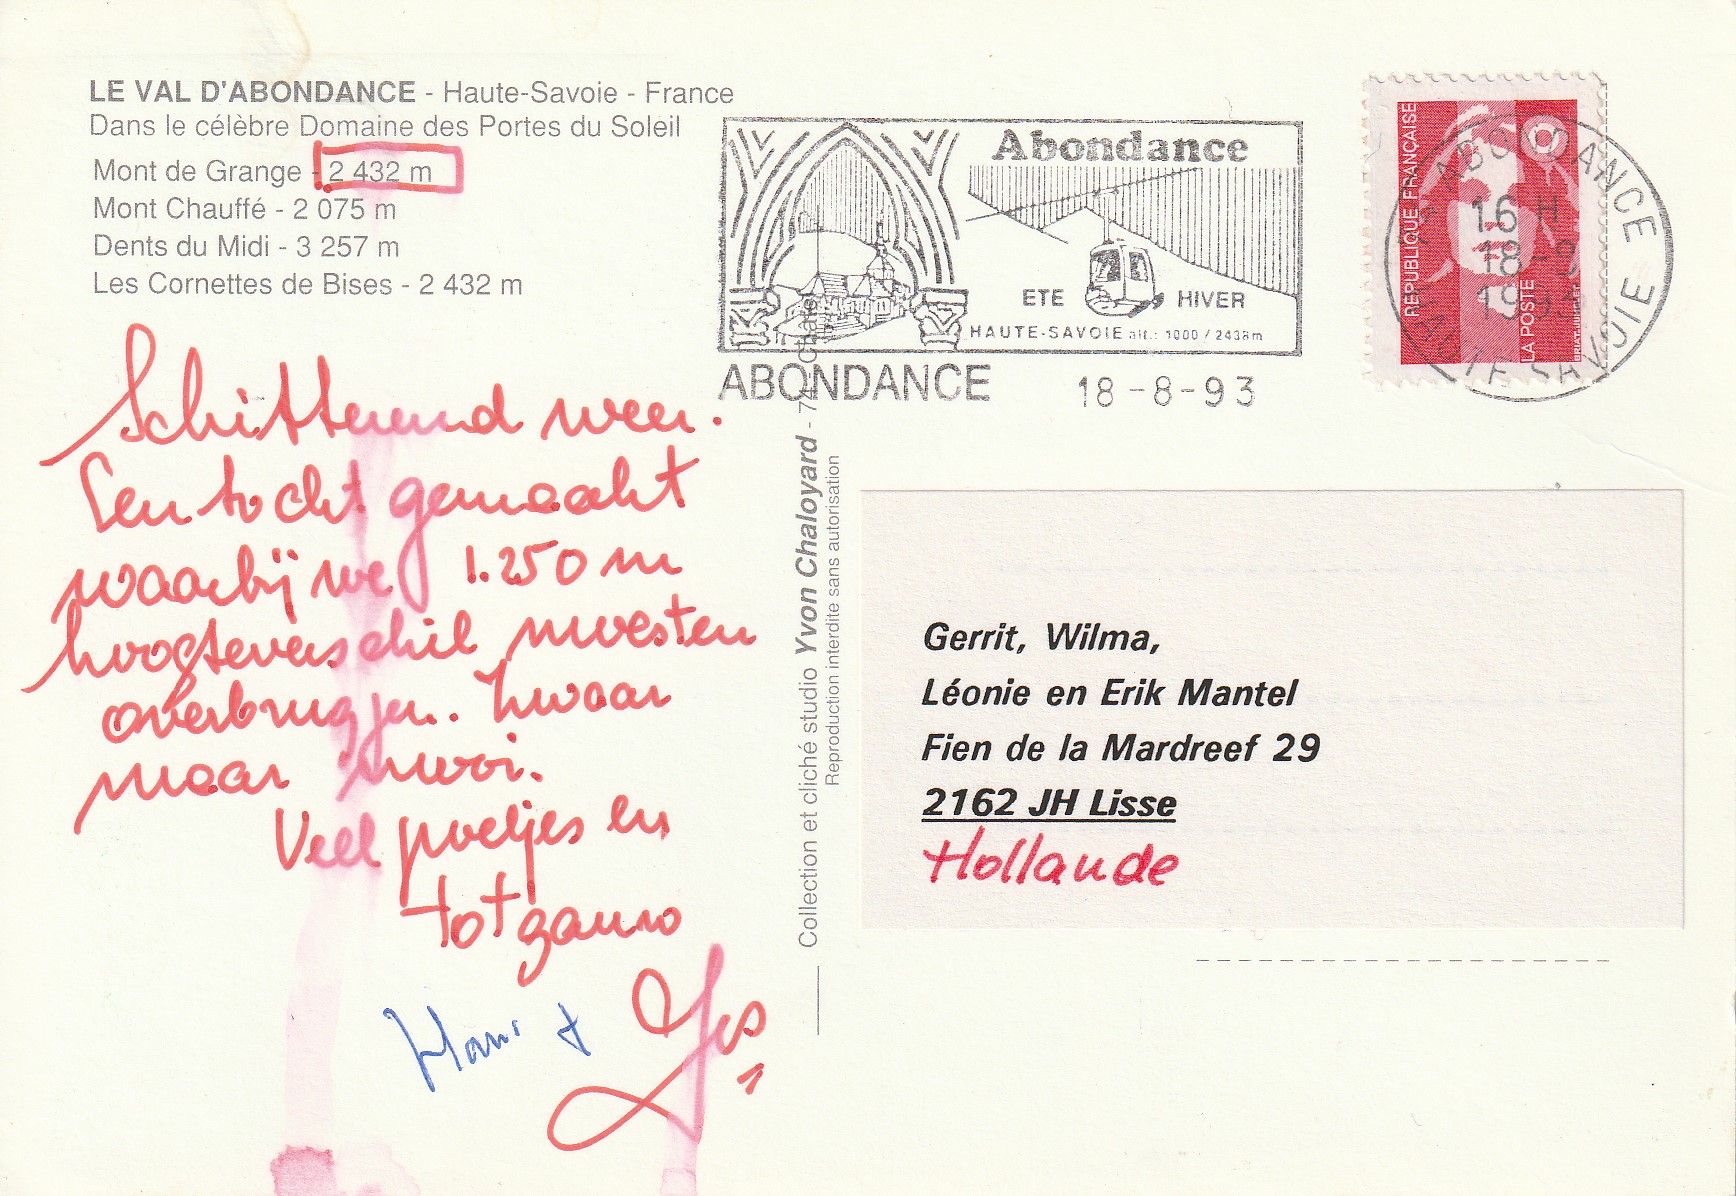 LE VAL D'ABONDANCE - Haute-Savoie - France
Dans le célèbre Domaine des Portes du Soleil
Mont de Grange - 2 432 m
Mont Chauffé - 2 075 m
Dents du Midi - 3 257 m
Les Cornettes de Bises - 2 432 m
Abondance
ETE HIVER
HAUTE-SAVOIE alt.: 1000 / 2438m
ABONDANCE 18-8-93
RÉPUBLIQUE FRANÇAISE
LA POSTE
ABONDANCE
16 H
18-8
1993
HAUTE SAVOIE
Schitterend weer.
Een tocht gemaakt
waarbij we 1.250 m
hoogteverschil moesten
overbruggen. Zwaar
maar mooi.
Veel poetjes en
tot gauw
Hans +
Collection et cliché studio Yvon Chaloyard - 74 Châtel
Reproduction interdite sans autorisation
Gerrit, Wilma,
Léonie en Erik Mantel
Fien de la Mardreef 29
2162 JH Lisse
Hollande